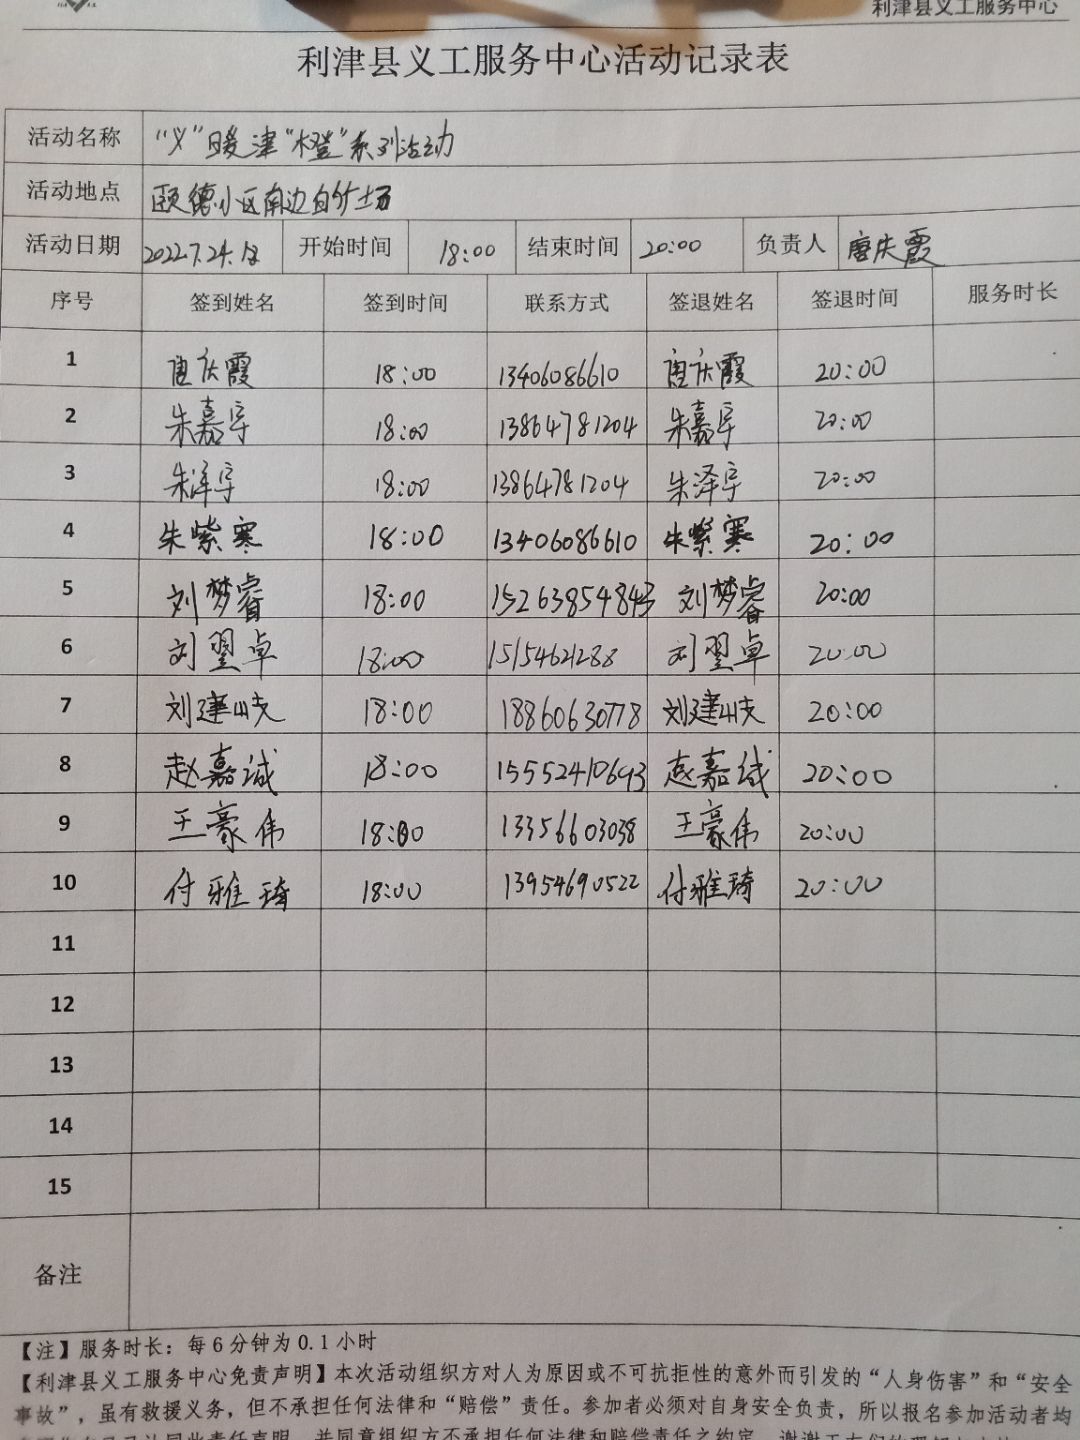 利津县义工服务中心
利津县义工服务中心活动记录表
活动名称 “义”暖津“橙”系列活动
活动地点 颐德小区南边白竹土场
活动日期 2022.7.24.日 开始时间 18:00 结束时间 20:00 负责人 唐庆霞
序号 签到姓名 签到时间 联系方式 签退姓名 签退时间 服务时长
1 唐庆霞 18:00 13406086610 唐庆霞 20:00
2 朱嘉宇 18:00 13864781204 朱嘉宇 20:00
3 朱泽宇 18:00 13864781204 朱泽宇 20:00
4 朱紫寒 18:00 13406086610 朱紫寒 20:00
5 刘梦睿 18:00 15263854843 刘梦睿 20:00
6 刘翌卓 18:00 15154621288 刘翌卓 20:00
7 刘建岐 18:00 18860630778 刘建岐 20:00
8 赵嘉诚 18:00 15552410693 赵嘉诚 20:00
9 王豪伟 18:00 13356603038 王豪伟 20:00
10 付雅琦 18:00 13954690522 付雅琦 20:00
11
12
13
14
15
备注
【注】服务时长：每6分钟为0.1小时
【利津县义工服务中心免责声明】本次活动组织方对人为原因或不可抗拒性的意外而引发的“人身伤害”和“安全
事故”，虽有救援义务，但不承担任何法律和“赔偿”责任。参加者必须对自身安全负责，所以报名参加活动者均